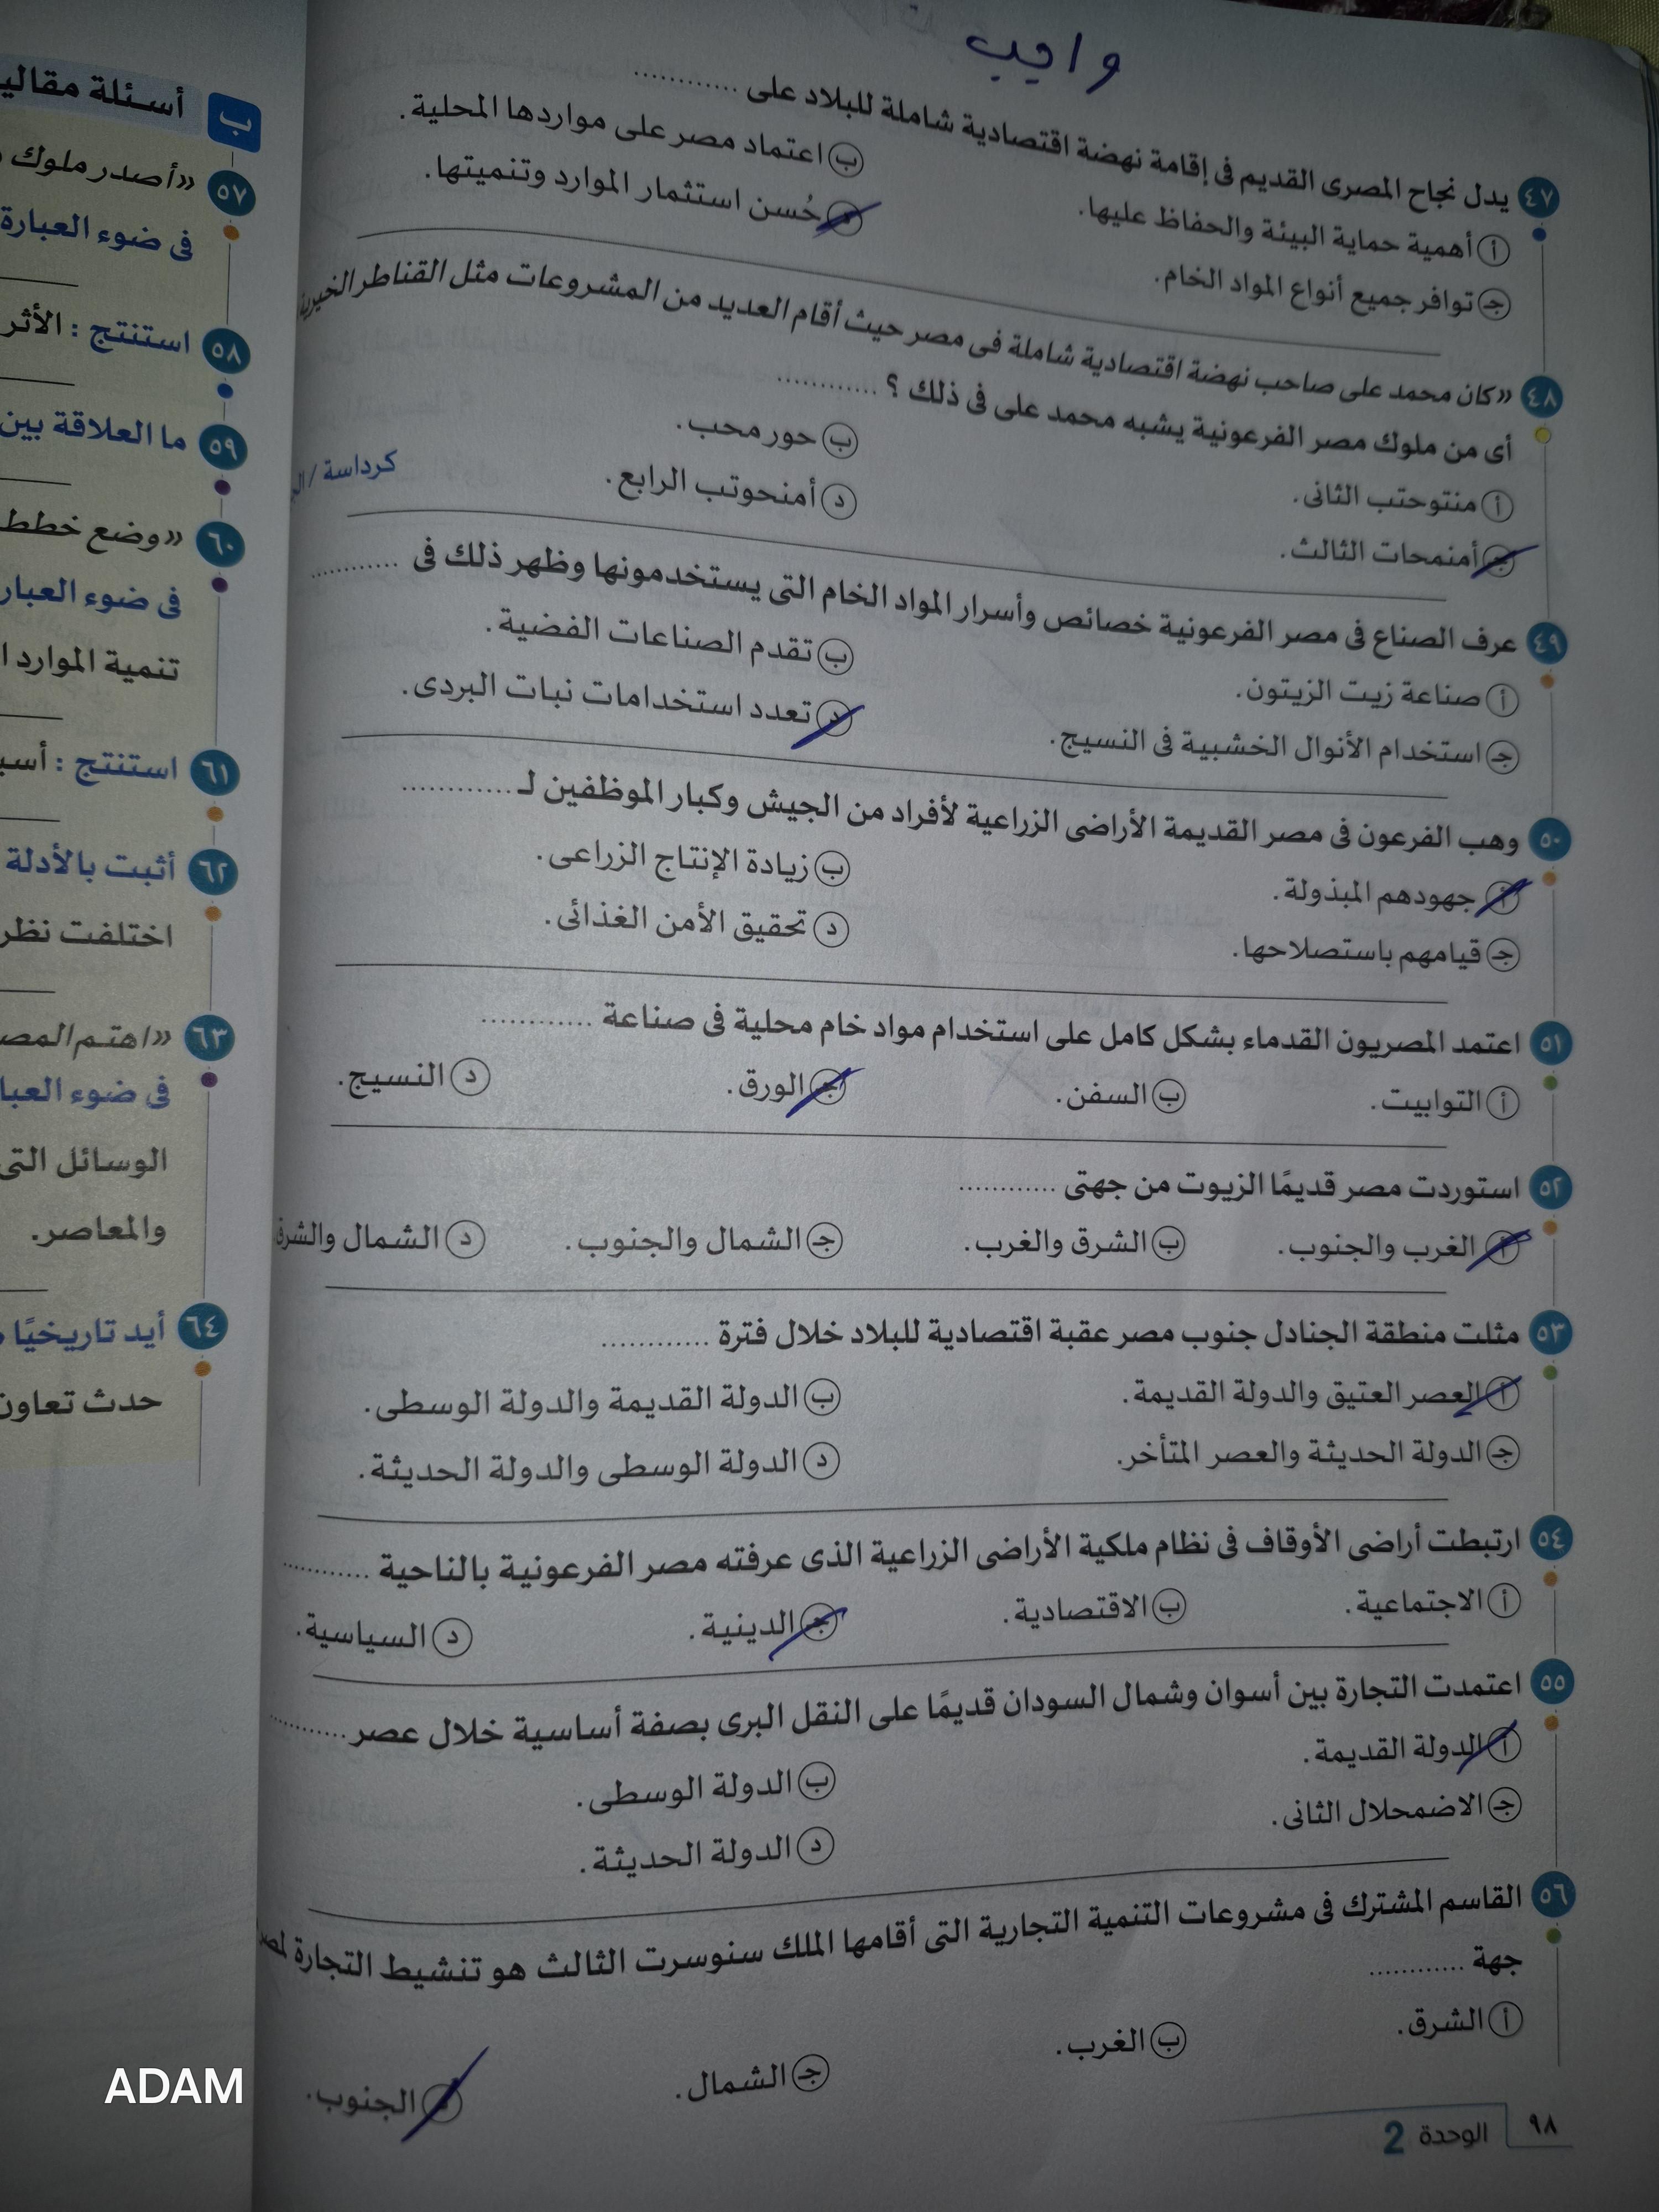 واجب
٤٧ يدل نجاح المصرى القديم فى إقامة نهضة اقتصادية شاملة للبلاد على ............
أ أهمية حماية البيئة والحفاظ عليها.
ب اعتماد مصر على مواردها المحلية.
جـ توافر جميع أنواع المواد الخام.
د حُسن استثمار الموارد وتنميتها.
٤٨ «كان محمد على صاحب نهضة اقتصادية شاملة فى مصر حيث أقام العديد من المشروعات مثل القناطر الخيرية
أى من ملوك مصر الفرعونية يشبه محمد على فى ذلك ؟ ............
أ منتوحتب الثانى.
ب حور محب.
جـ أمنمحات الثالث.
د أمنحوتب الرابع.
كرداسة /
٤٩ عرف الصناع فى مصر الفرعونية خصائص وأسرار المواد الخام التى يستخدمونها وظهر ذلك فى ............
أ صناعة زيت الزيتون.
ب تقدم الصناعات الفضية.
جـ استخدام الأنوال الخشبية فى النسيج.
د تعدد استخدامات نبات البردى.
٥٠ وهب الفرعون فى مصر القديمة الأراضى الزراعية لأفراد من الجيش وكبار الموظفين لـ ............
أ جهودهم المبذولة.
ب زيادة الإنتاج الزراعى.
جـ قيامهم باستصلاحها.
د تحقيق الأمن الغذائى.
٥١ اعتمد المصريون القدماء بشكل كامل على استخدام مواد خام محلية فى صناعة ............
أ التوابيت. ب السفن. جـ الورق. د النسيج.
٥٢ استوردت مصر قديمًا الزيوت من جهتى ............
أ الغرب والجنوب. ب الشرق والغرب. جـ الشمال والجنوب. د الشمال والشرق
٥٣ مثلت منطقة الجنادل جنوب مصر عقبة اقتصادية للبلاد خلال فترة ............
أ العصر العتيق والدولة القديمة.
ب الدولة القديمة والدولة الوسطى.
جـ الدولة الحديثة والعصر المتأخر.
د الدولة الوسطى والدولة الحديثة.
٥٤ ارتبطت أراضى الأوقاف فى نظام ملكية الأراضى الزراعية الذى عرفته مصر الفرعونية بالناحية ............
أ الاجتماعية. ب الاقتصادية. جـ الدينية. د السياسية.
٥٥ اعتمدت التجارة بين أسوان وشمال السودان قديمًا على النقل البرى بصفة أساسية خلال عصر ............
أ الدولة القديمة.
ب الدولة الوسطى.
جـ الاضمحلال الثانى.
د الدولة الحديثة.
٥٦ القاسم المشترك فى مشروعات التنمية التجارية التى أقامها الملك سنوسرت الثالث هو تنشيط التجارة
جهة ............
أ الشرق. ب الغرب. جـ الشمال. د الجنوب.
٩٨ الوحدة 2
ب أسئلة مقالي
٥٧ «أصدر ملوك
فى ضوء العبارة
٥٨ استنتج : الأثر
٥٩ ما العلاقة بين
٦٠ «وضع خطط
فى ضوء العبار
تنمية الموارد ا
٦١ استنتج : أسب
٦٢ أثبت بالأدلة
اختلفت نظر
٦٣ «اهتم المص
فى ضوء العبا
الوسائل التى
والمعاصر.
٦٤ أيد تاريخيًا
حدث تعاون
ADAM